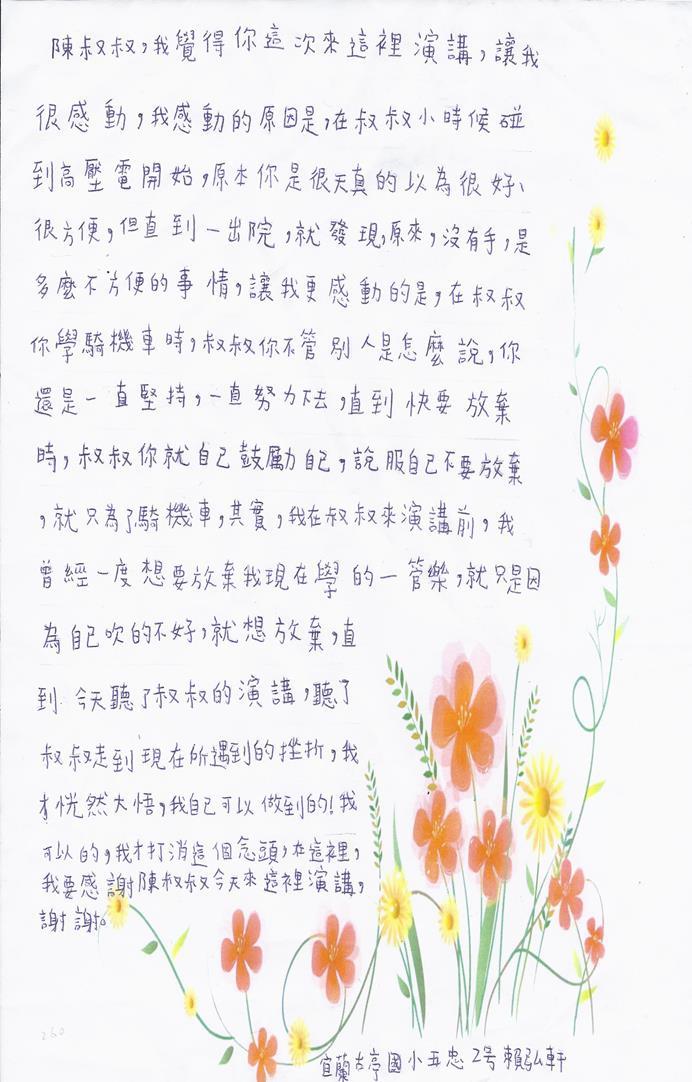 陳叔叔，我覺得你這次來這裡演講，讓我
很感動，我感動的原因是，在叔叔小時候碰
到高壓電開始，原本你是很天真的以為很好、
很方便，但直到一出院，就發現，原來，沒有手，是
多麼不方便的事情，讓我更感動的是，在叔叔
你學騎機車時，叔叔你不管別人是怎麼說，你
還是一直堅持，一直努力下去，直到快要放棄
時，叔叔你就自己鼓勵自己，說服自己不要放棄
，就只為了騎機車，其實，我在叔叔來演講前，我
曾經一度想要放棄我現在學的一管樂，就只是因
為自己吹的不好，就想放棄，直
到今天聽了叔叔的演講，聽了
叔叔走到現在所遇到的挫折，我
才恍然大悟，我自己可以做到的！我
可以的，我才打消這個念頭，在這裡，
我要感謝陳叔叔今天來這裡演講，
謝謝。
260
宜蘭古亭國小五忠2号賴弘軒